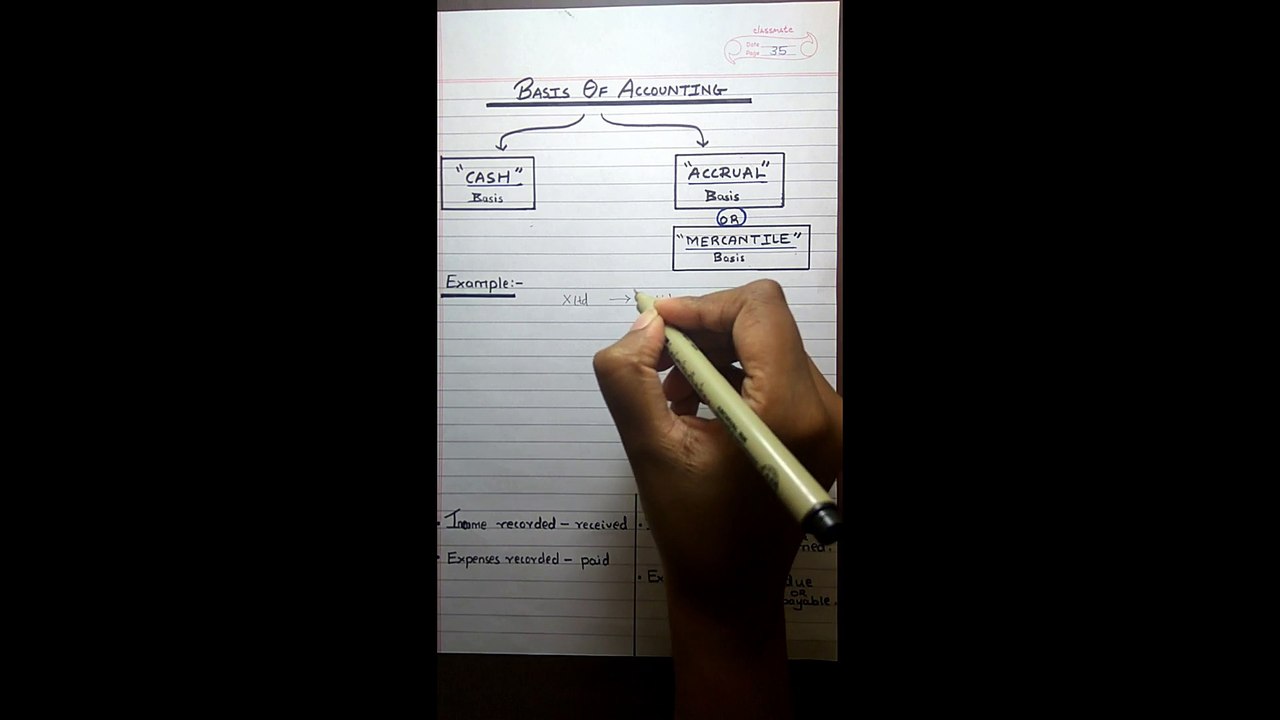 classmate
Date
Page 35
BASIS OF ACCOUNTING
"CASH"
Basis
"ACCRUAL"
Basis
OR
"MERCANTILE"
Basis
Example:-
X ltd →
• Income recorded - received
• Expenses recorded - paid
due
OR
payable.